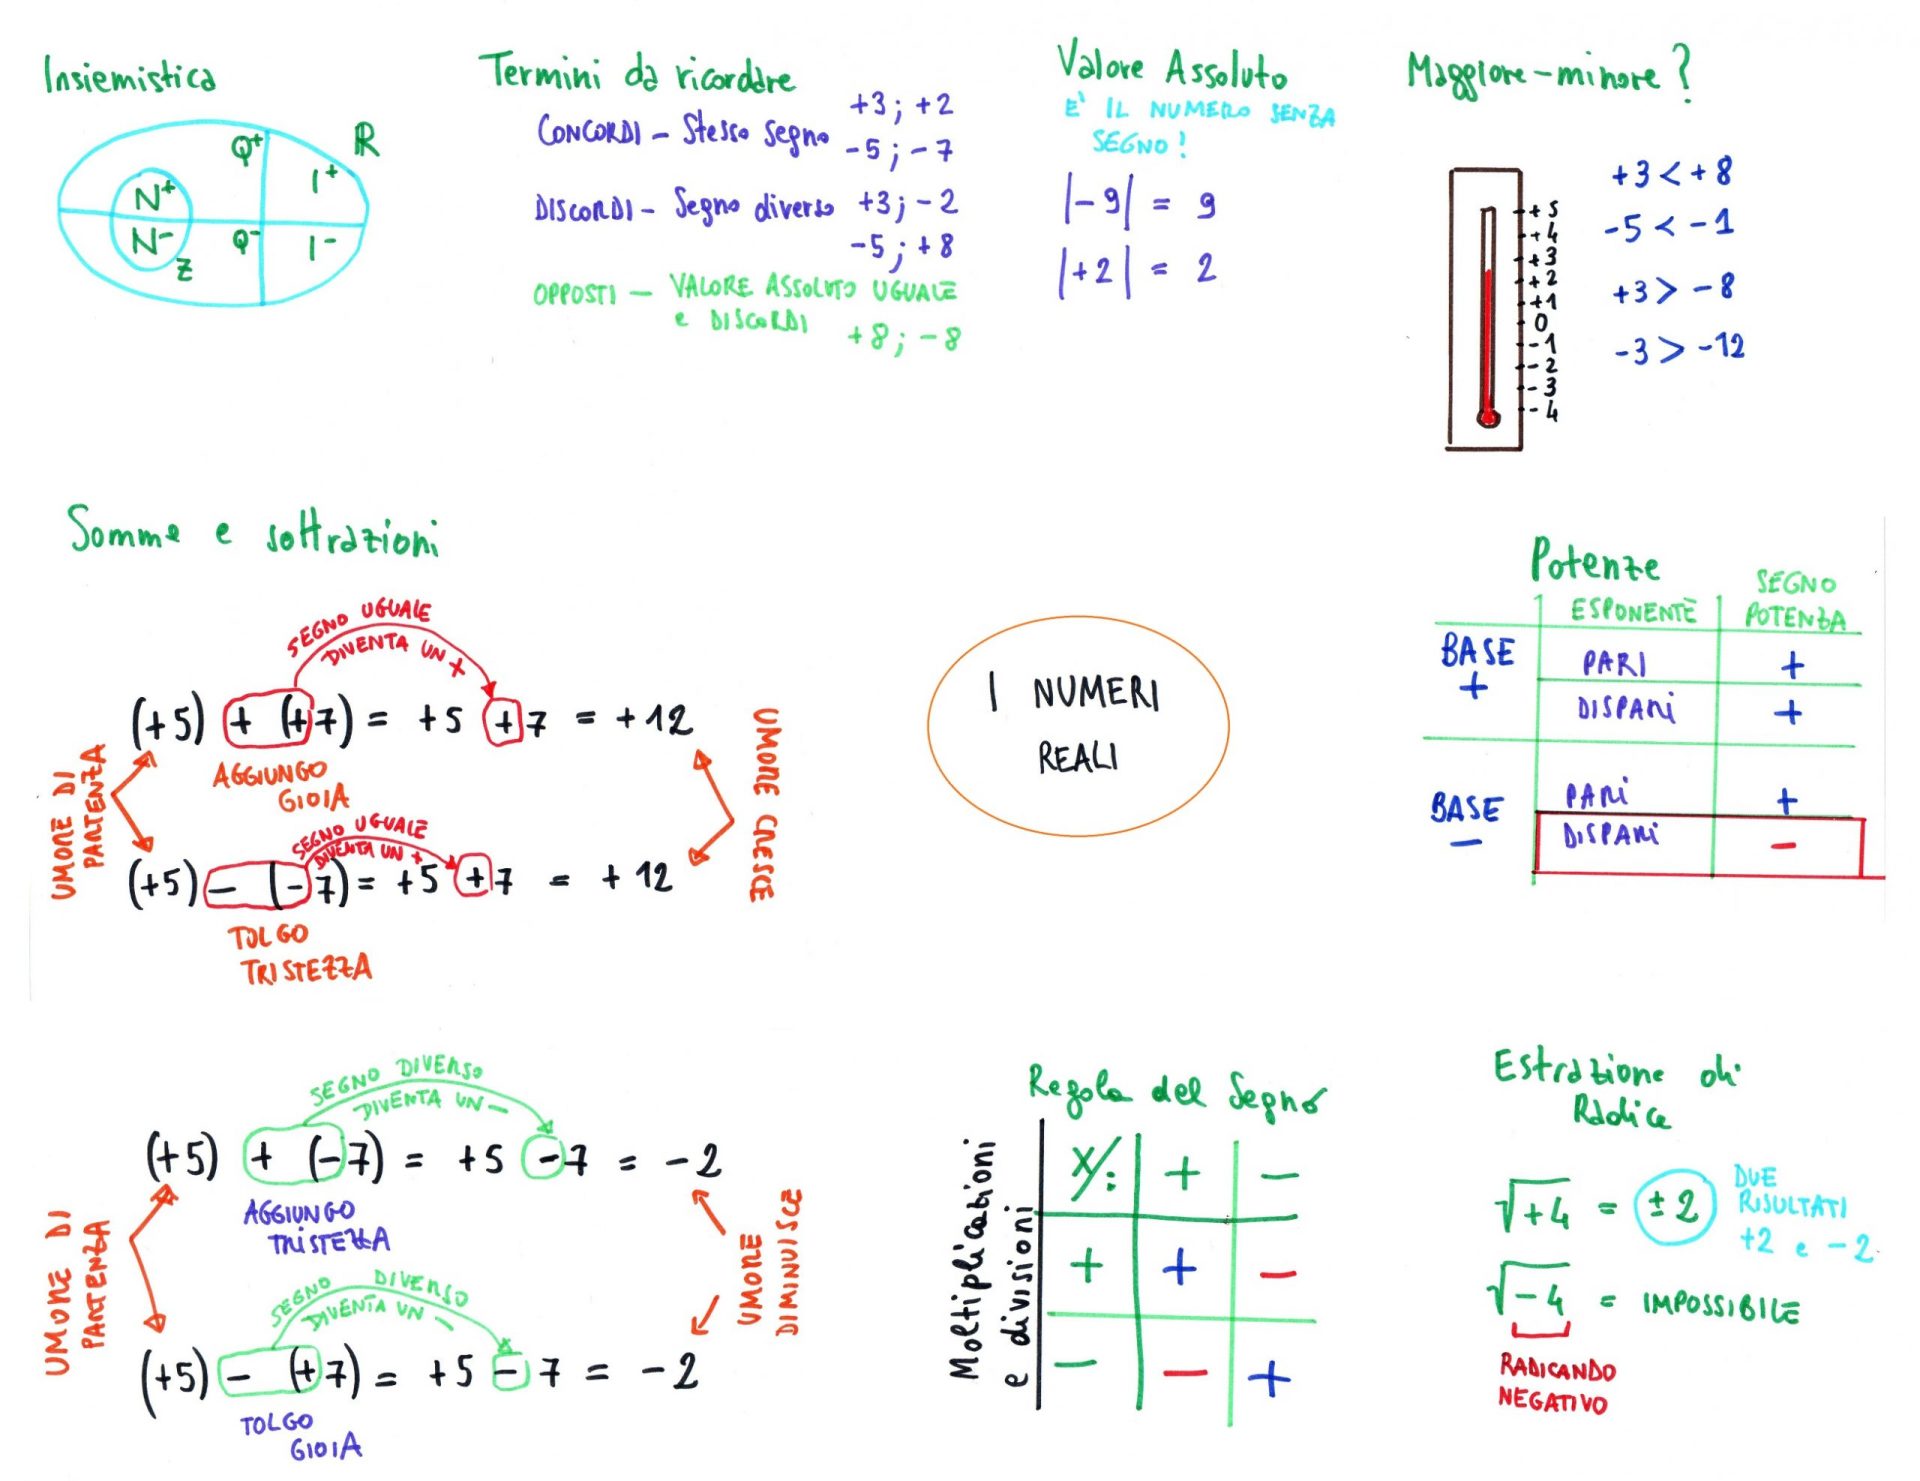 Insiemistica
Q+
R
I+
N+
N-
Z
Q-
I-
Termini da ricordare
CONCORDI - Stesso segno
+3; +2
-5; -7
DISCORDI - Segno diverso
+3; -2
-5; +8
OPPOSTI - VALORE ASSOLUTO UGUALE
e DISCORDI
+8; -8
Valore Assoluto
E' IL NUMERO SENZA
SEGNO!
|-9| = 9
|+2| = 2
Maggiore-minore?
+5
+4
+3
+2
+1
0
-1
-2
-3
-4
+3 < +8
-5 < -1
+3 > -8
-3 > -12
Somme e sottrazioni
SEGNO UGUALE
DIVENTA UN +
(+5) + (+7) = +5 +7 = +12
AGGIUNGO
GIOIA
UMORE DI
PARTENZA
SEGNO UGUALE
DIVENTA UN +
(+5) - (-7) = +5 +7 = +12
TOLGO
TRISTEZZA
UMORE CRESCE
I NUMERI
REALI
Potenze
ESPONENTE
SEGNO
POTENZA
BASE
+
PARI +
DISPARI +
BASE
-
PARI +
DISPARI -
SEGNO DIVERSO
DIVENTA UN -
(+5) + (-7) = +5 -7 = -2
AGGIUNGO
TRISTEZZA
UMORE DI
PARTENZA
SEGNO DIVERSO
DIVENTA UN -
(+5) - (+7) = +5 -7 = -2
TOLGO
GIOIA
UMORE
DIMINUISCE
Regola del Segno
Moltiplicazioni
e divisioni
x/: + -
+ + -
- - +
Estrazione di
Radice
√+4 = ±2
DUE
RISULTATI
+2 e -2
√-4 = IMPOSSIBILE
RADICANDO
NEGATIVO